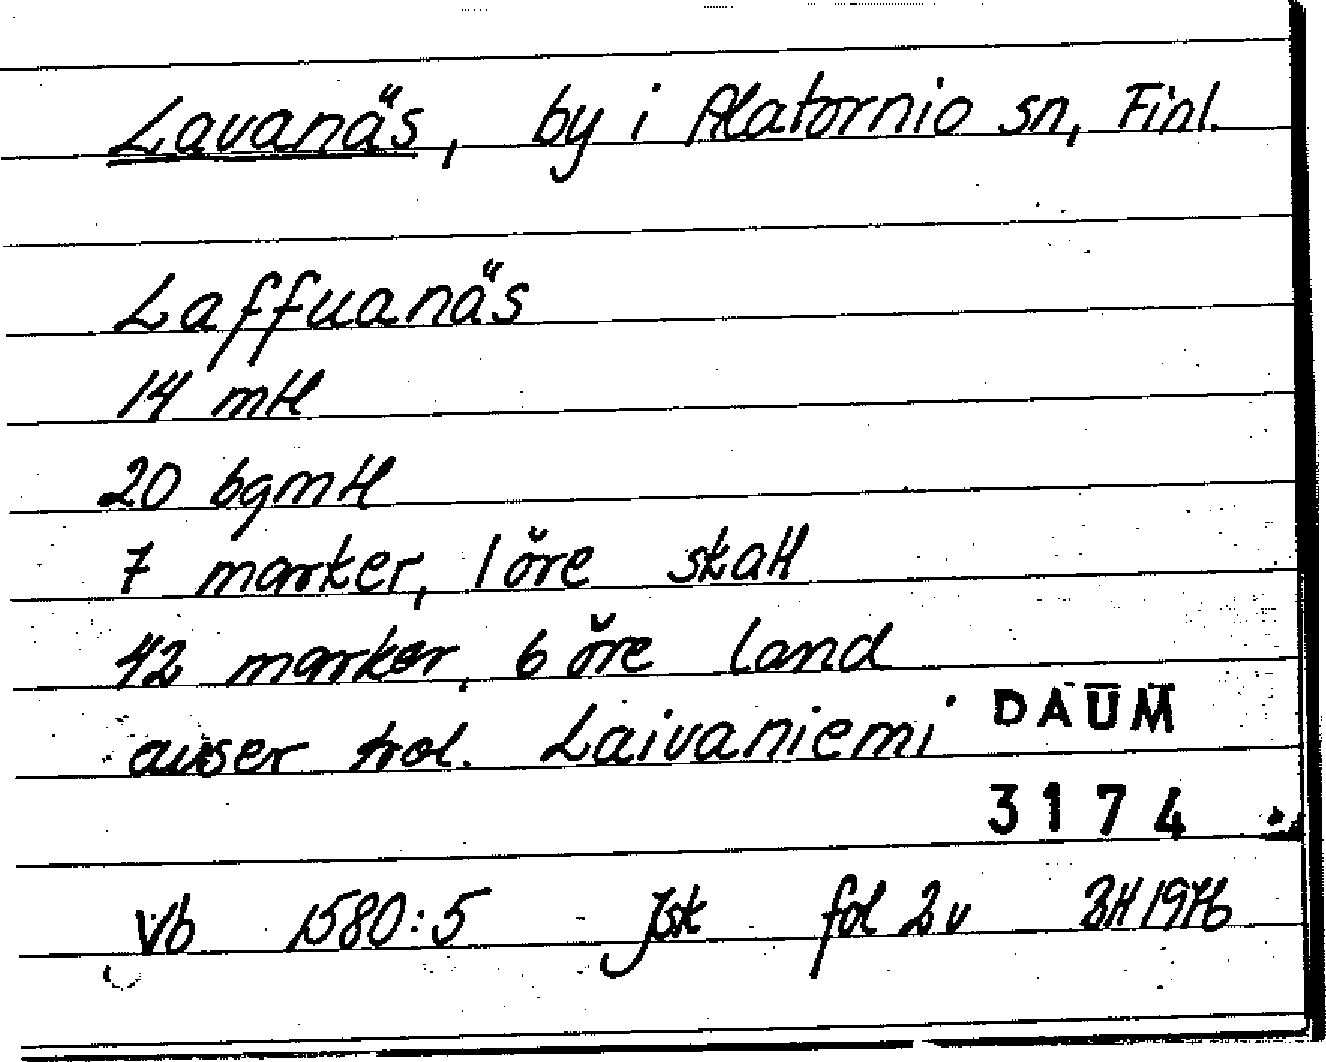 Lavanäs, by i Alatornio sn, Finl.
Laffuanäs
14 mtl
20 bgmtl
7 marker, 1 öre skatt
42 marker, 6 öre land
avser trol. Laivaniemi
DAUM
3174
Vb 1580:5 Jsk fol 2v 1976